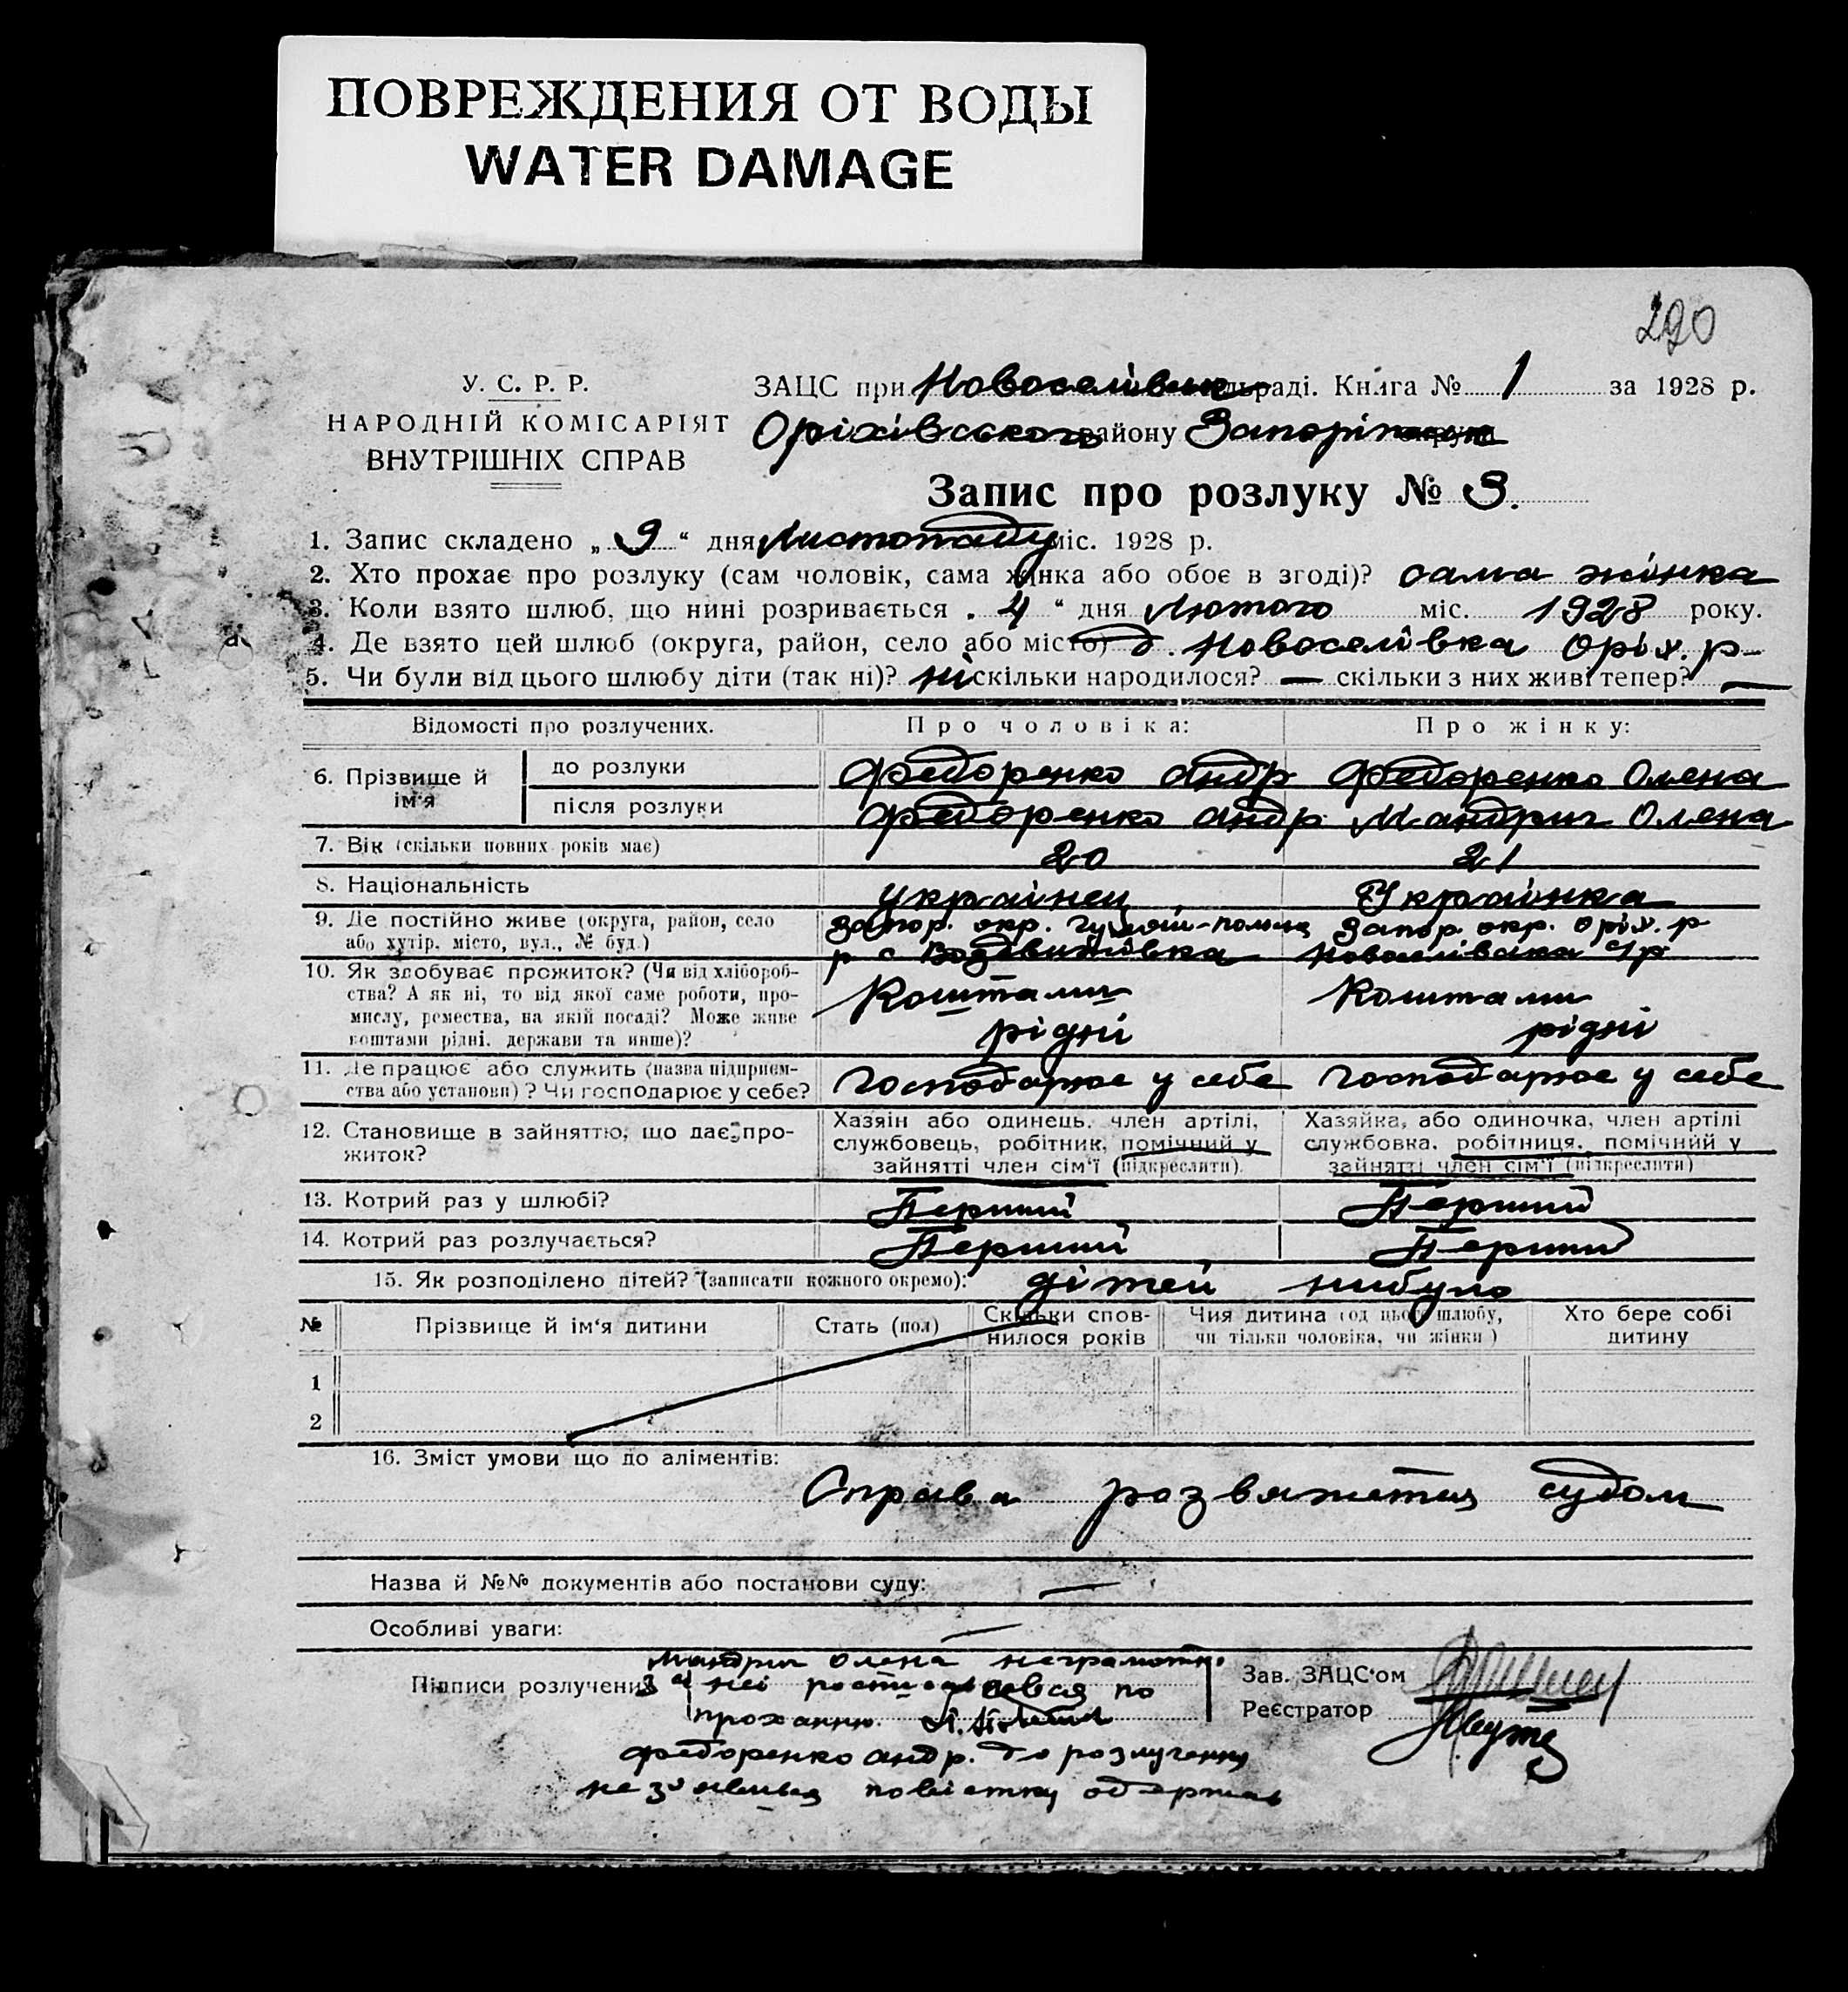 ПОВРЕЖДЕНИЯ ОТ ВОДЫ
WATER DAMAGE
290
У. С. Р. Р.
НАРОДНІЙ КОМІСАРІЯТ
ВНУТРІШНІХ СПРАВ
ЗАЦС при Новоселівськ раді. Книга № 1 за 1928 р.
Оріхівського району Запоріж
Запис про розлуку № 3.
1. Запис складено „ 9 “ дня Листопаду міс. 1928 р.
2. Хто прохає про розлуку (сам чоловік, сама жінка або обоє в згоді)? сама жінка
3. Коли взято шлюб, що нині розривається „ 4 “ дня Лютого міс. 1928 року.
4. Де взято цей шлюб (округа, район, село або місто) с. Новоселівка Оріх. р-
5. Чи були від цього шлюбу діти (так ні)? ні скільки народилося? — скільки з них живі тепер? —
Відомості про розлучених. Про чоловіка: Про жінку:
6. Прізвище й ім'я
до розлуки Федоренко Андр Федоренко Олена
після розлуки Федоренко Андр Мандрич Олена
7. Вік (скільки повних років має) 20 21
8. Національність Українец Українка
9. Де постійно живе (округа, район, село або хутір, місто, вул., № буд.)
Запор. окр. Гуляй-польськ
р с Воздвижівка
Запор. окр. Оріх. р
Новоселівська
10. Як здобуває прожиток? (Чи від хлібороб-
ства? А як ні, то від якої саме роботи, про-
мислу, ремества, на якій посаді? Може живе
коштами рідні, держави та инше)?
Коштами рідні Коштами рідні
11. Де працює або служить (назва підприєм-
ства або установи)? Чи господарює у себе?
Господарює у себе Господарює у себе
12. Становище в зайняттю, що дає про-
житок?
Хазяїн або одинець, член артілі,
службовець, робітник, помічний у
зайнятті член сім'ї (підкреслити).
Хазяйка, або одиночка, член артілі
службовка, робітниця, помічний у
зайнятті член сім'ї (підкреслити)
13. Котрий раз у шлюбі? Перший Перший
14. Котрий раз розлучається? Перший Перший
15. Як розподілено дітей? (записати кожного окремо): дітей нибуло
№ Прізвище й ім'я дитини Стать (пол) Скільки спов-нилося років Чия дитина (од цього шлюбу, чи тільки чоловіка, чи жінки) Хто бере собі дитину
1
2
16. Зміст умови що до аліментів:
Справа розвяжетця судом
Назва й №№ документів або постанови суду: —
Особливі уваги: —
Підписи розлучених
Мандрич Олена неграмотн
за неї росписався по
проханню
Федоренко Андр. до розлучення
не зъявився повістку одержав
Зав. ЗАЦС'ом
Реєстратор